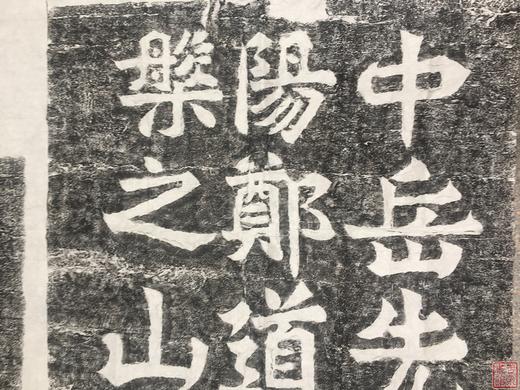 中岳先
陽鄭道
槃之山